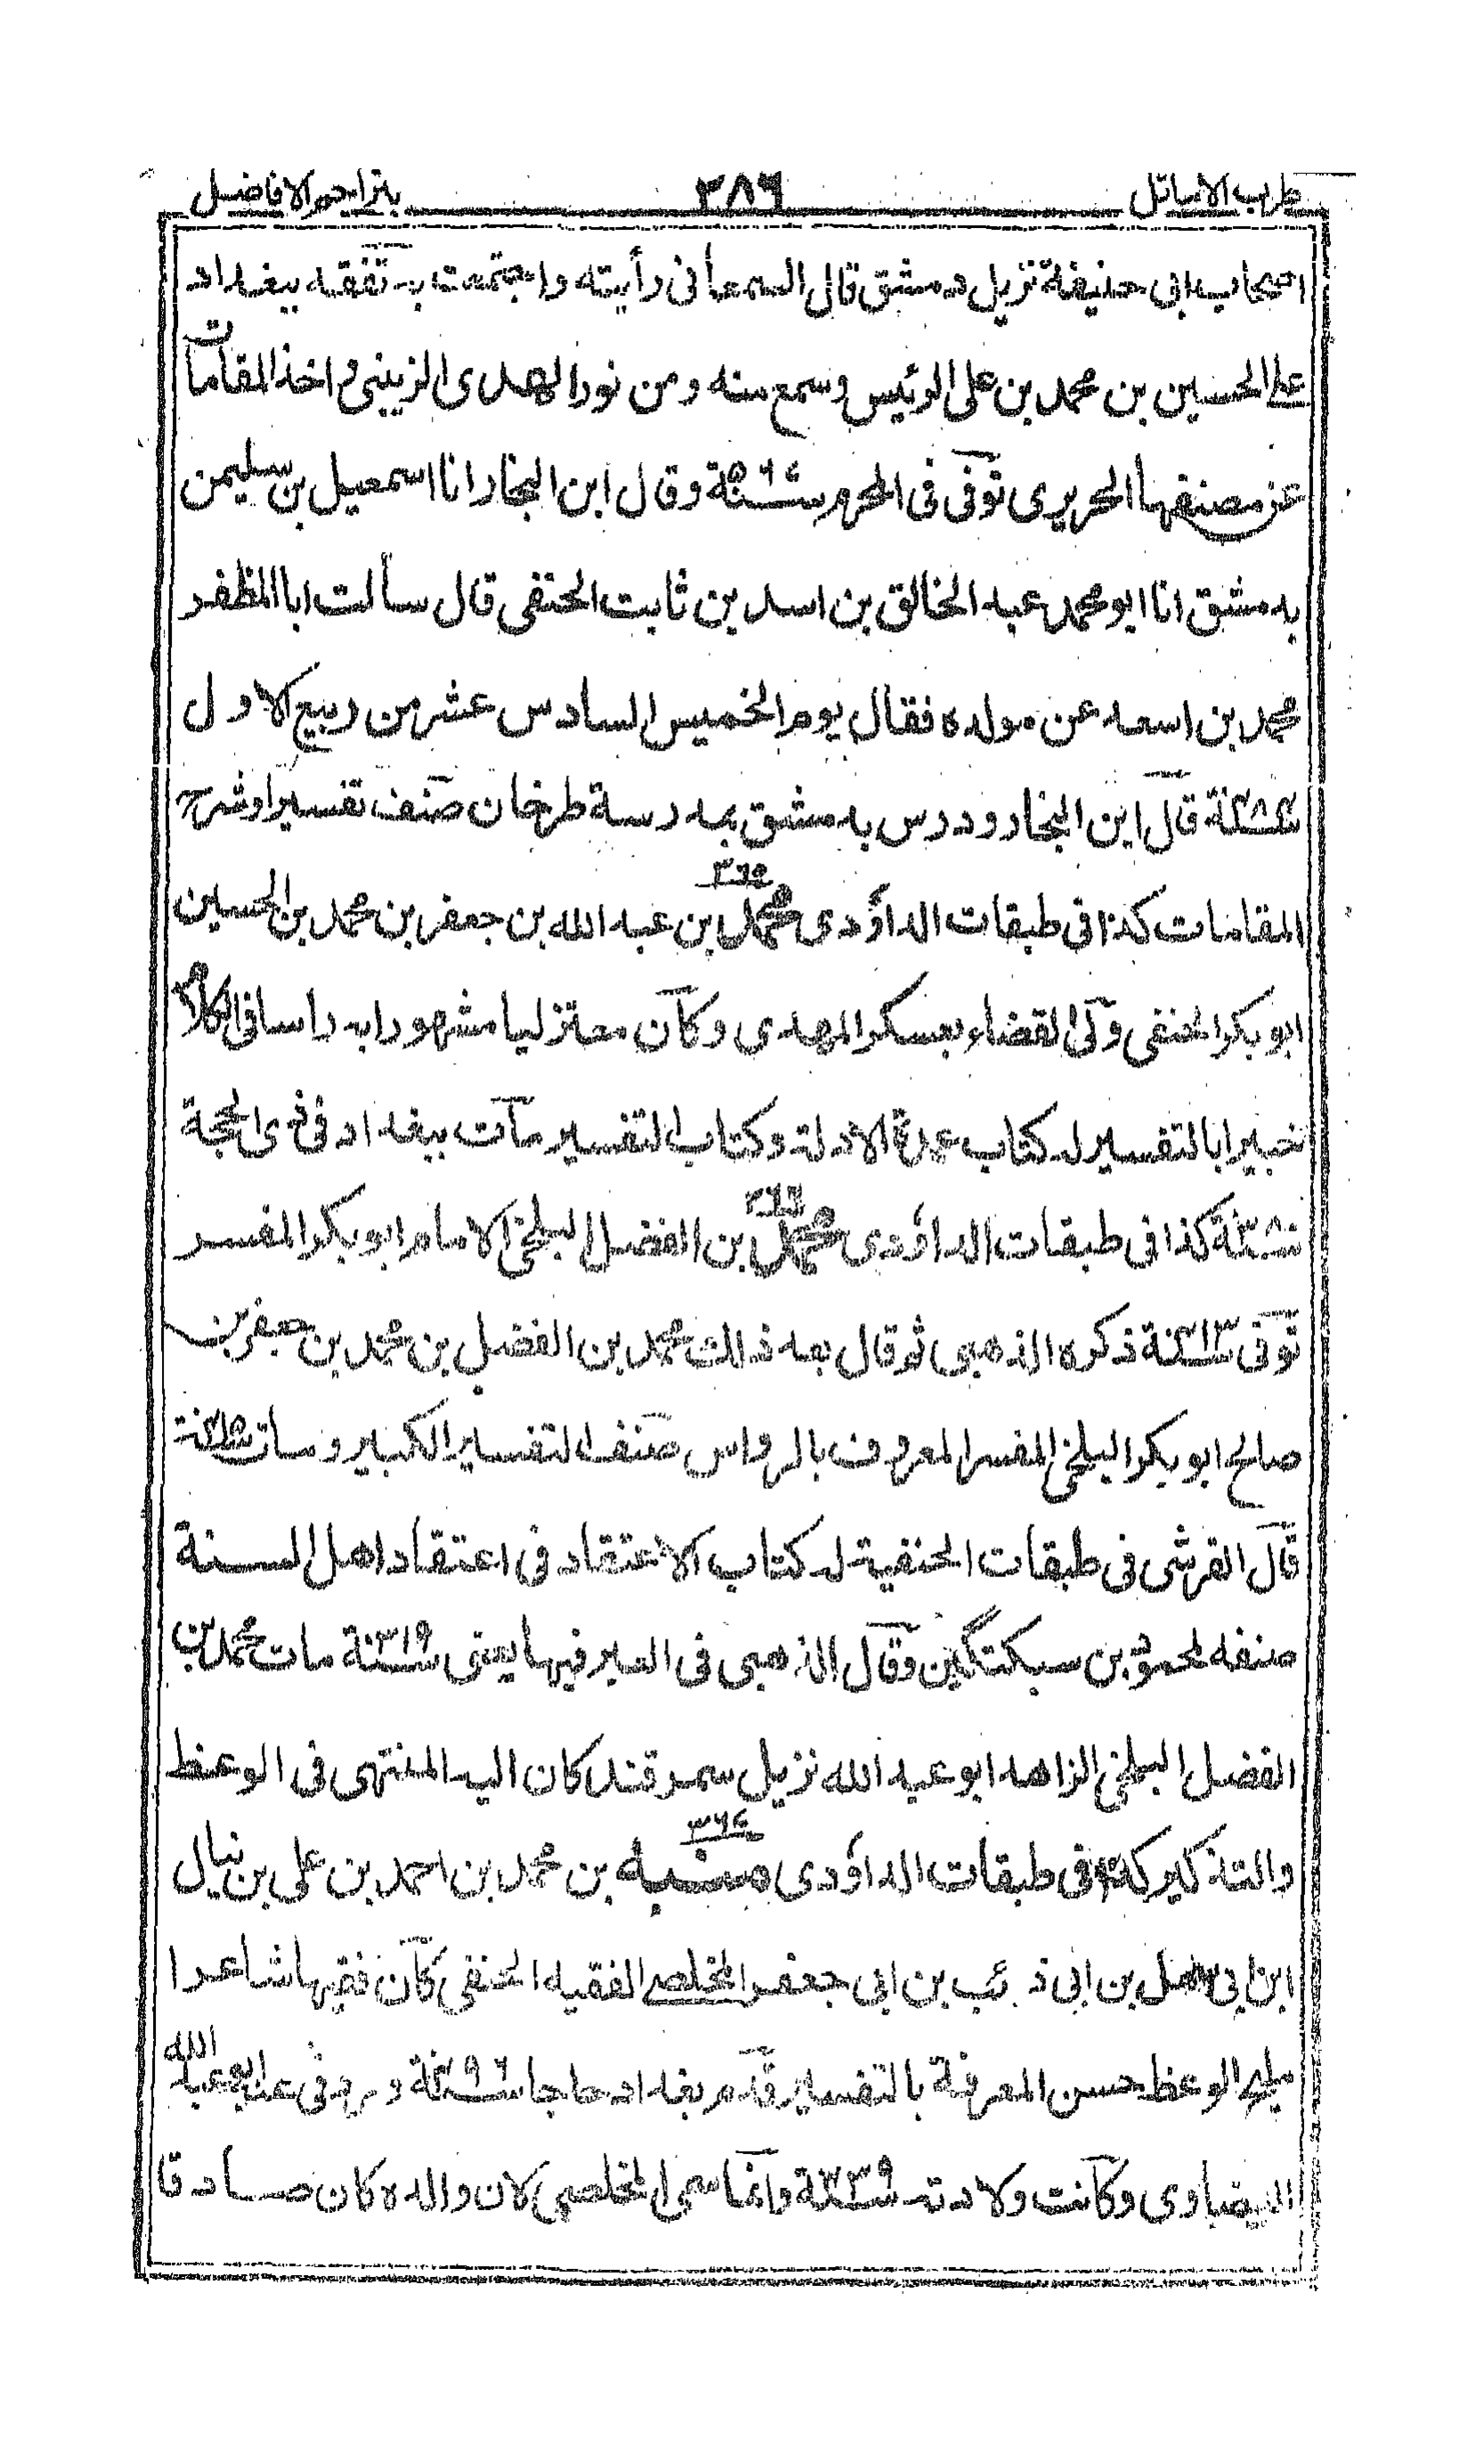 طرب الاماثل ٣٨٦ بتراجم الافاضل
اصحاب ابى حنيفة نزيل دمشق قال السمعانى رأيته واجتمعت به تفقه ببغداد
على الحسين بن محمد بن على الرئيس وسمع منه ومن نور الهدى الزينبى واخذ المقامات
عن مصنفها الحريرى توفى فى المحرم سنة ٥٦٧ وقال ابن النجار انا اسمعيل بن سليمن
بدمشق انا ابو محمد عبد الخالق بن اسد بن ثابت الحنفى قال سألت ابا المظفر
محمد بن اسعد عن مولده فقال يوم الخميس السادس عشر من ربيع الاول
سنة ٤٨٤ قال ابن النجار ودرس بدمشق بمدرسة طرخان صنف تفسيرا وشرح
المقامات كذا فى طبقات الداؤدى ٣٦٥ محمد بن عبد الله بن جعفر بن محمد بن الحسين
ابو بكر الحنفى ولى القضاء بعسكر المهدى وكان معتزليا مشهورا به راسا فى الكلام
خبيرا بالتفسير له كتاب عمدة الادلة وكتاب التفسير مات ببغداد فى ذى الحجة
سنة ٣٨٠ كذا فى طبقات الداؤدى ٣٦٦ محمد بن الفضل البلخى الامام ابو بكر المفسر
توفى سنة ذكره الذهبى ثم قال بعد ذلك محمد بن الفضل بن محمد بن جعفر بن
صالح ابو بكر البلخى المفسر المعروف بالرواس صنف التفسير الكبير ومات سنة
قال القرشى فى طبقات الحنفية له كتاب الاعتقاد فى اعتقاد اهل السنة
صنفه لمحمود بن سبكتگين وقال الذهبى فى العبر فيها يعنى سنة ٣١٩ مات محمد بن
الفضل البلخى الزاهد ابو عبد الله نزيل سمرقند كان اليه المنتهى فى الوعظ
والتذكير كذا فى طبقات الداؤدى ٣٦٧ منبه بن محمد بن احمد بن على بن نيال
ابن ابى سهل بن ابى ذئب بن ابى جعفر المخلصى الفقيه الحنفى كان فقيها شاعرا
مليح الوعظ حسن المعرفة بالتفسير قدم بغداد حاجا سنة ٤٩٦ وروى عنه ابو عبد الله
البيضاوى وكانت ولادته سنة ٤٣٩ وانما سمى المخلصى لان والده كان صادقا